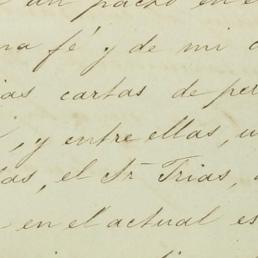 un pacto en e
na fé y de mi
ias cartas de pe
, y entre ellas, u
las, el Sr Trias,
en el actual es